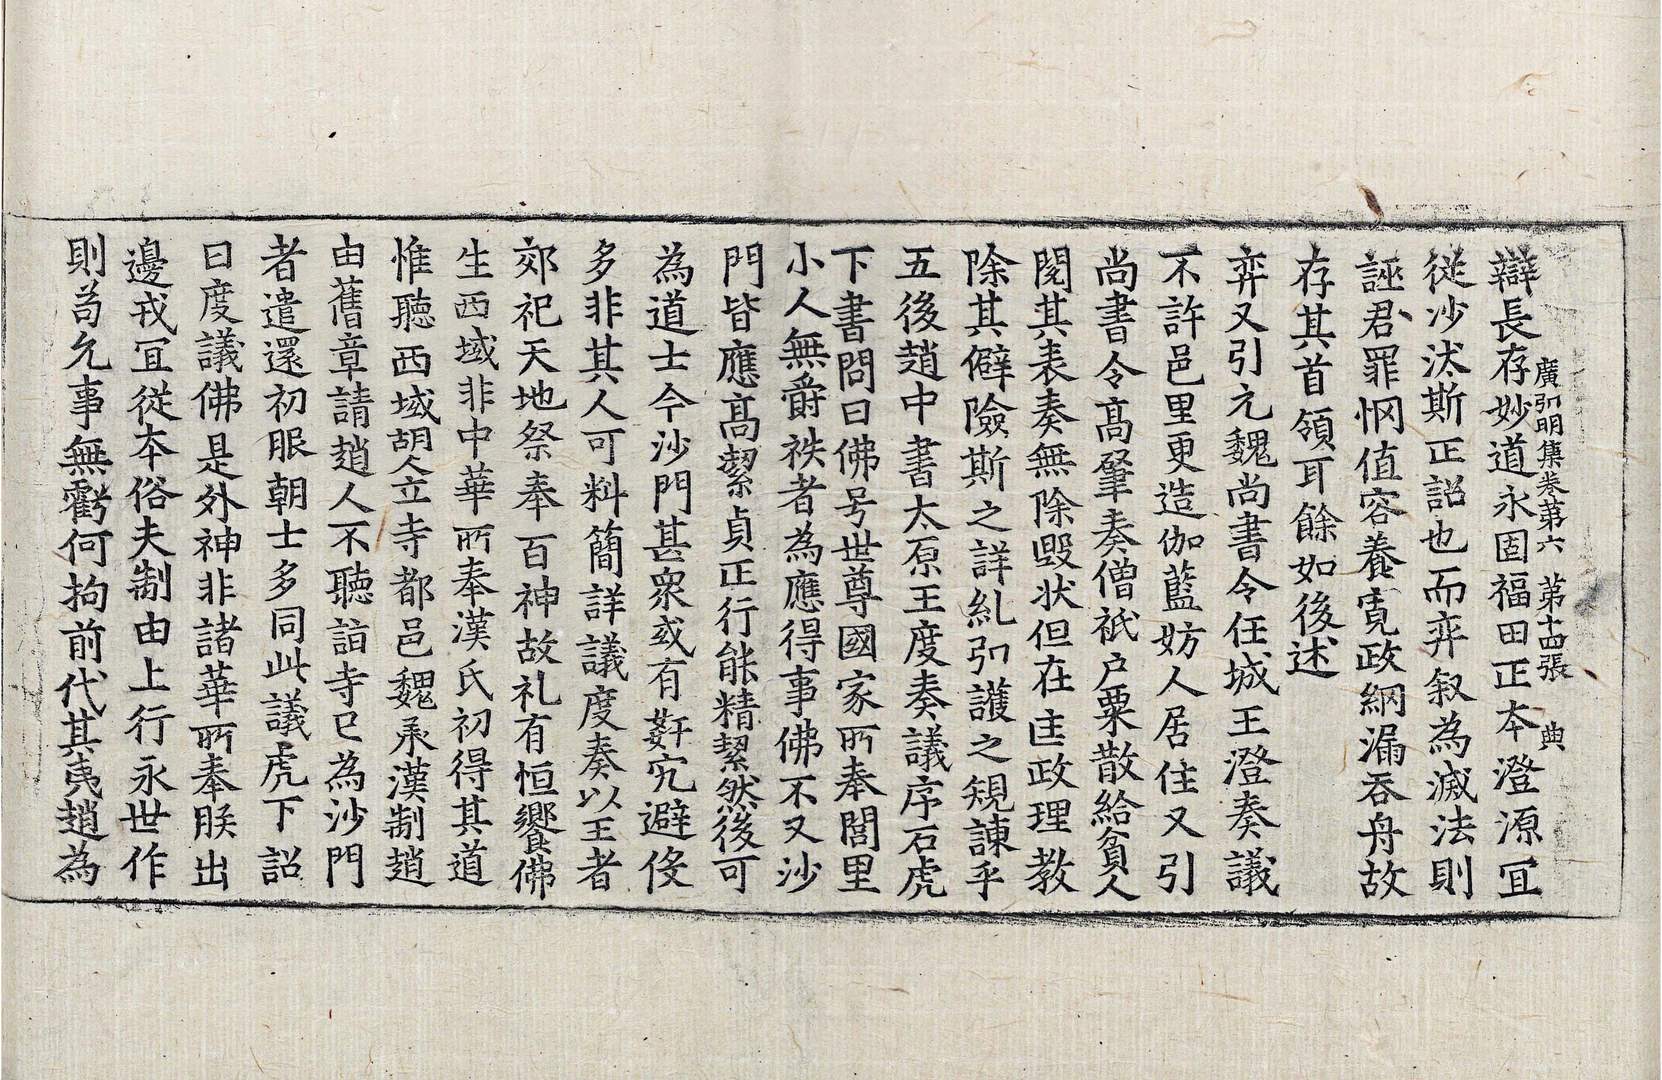 廣弘明集卷第六　第十四張　典
辯長存妙道永固福田正本澄源冝
從沙汰斯正詔也而弈叙為滅法則
誣君罪㒺值容養寬政綱漏吞舟故
存其首領耳餘如後述
弈又引元魏尚書令任城王澄奏議
不許邑里更造伽藍妨人居住又引
尚書令高肇奏僧祇户粟散給貧人
閱其表奏無除毀状但在匡政理教
除其僻險斯之詳糺弘護之規諫乎
五後趙中書太原王度奏議序石虎
下書問曰佛号世尊國家所奉閭里
小人無爵袟者為應得事佛不又沙
門皆應髙絜貞正行能精絜然後可
為道士今沙門甚衆或有姧宄避役
多非其人可料簡詳議度奏以王者
郊祀天地祭奉百神故礼有恒饗佛
生西域非中華所奉漢氏初得其道
惟聽西域胡人立寺都邑魏承漢制趙
由舊章請趙人不聽詣寺已為沙門
者遣還初服朝士多同此議虎下詔
曰度議佛是外神非諸華所奉朕出
邊戎冝從本俗夫制由上行永世作
則苟允事無虧何拘前代其夷趙為